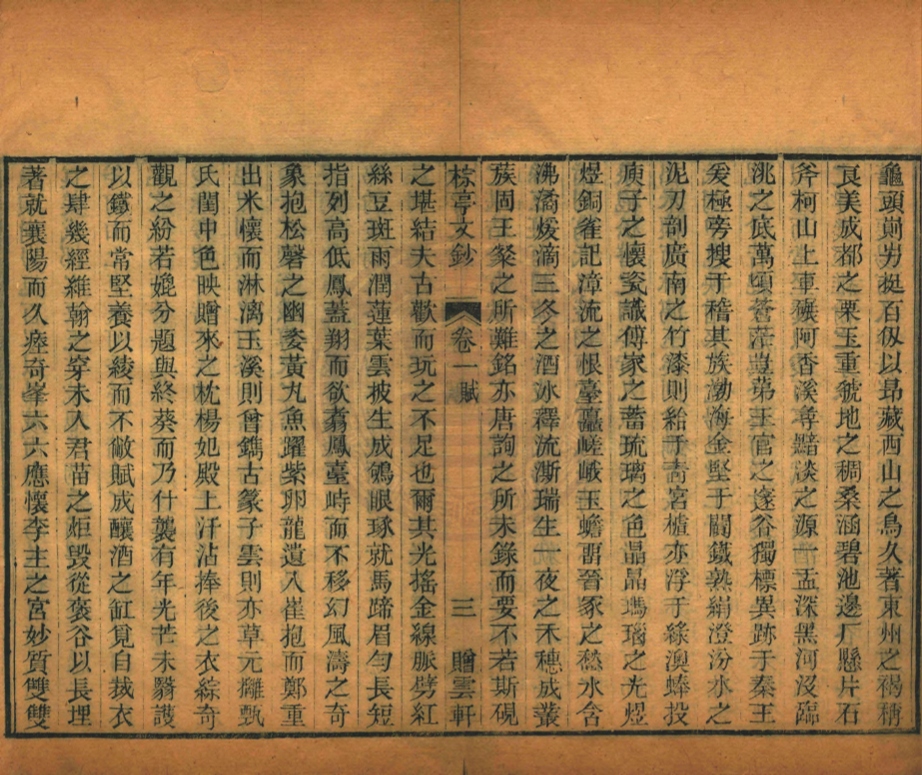 龜頭崱屴挺百仭以昂藏西山之鳥久著東州之褐稱
良美成都之栗玉重虢地之稠桑涵碧池邊厂懸片石
斧柯山上車碾阿香溪尋黯淡之源一盂深黑河沒臨
洮之底萬頃蒼茫豈第王官之邃谷獨標異跡于秦王
爰極旁搜于稽其族渤海金堅于鬭鐵熟絹澄汾水之
泥刀剖廣南之竹漆則給于青宮樝亦浮于綠澳蜯投
庾子之懷瓷識傅家之蓄琉璃之色晶晶瑪瑙之光熤
煜銅雀記漳流之根臺矗嵯峨玉蟾留晉冢之愁水含
沸潏煖滴三冬之酒冰釋流澌瑞生一夜之禾穗成叢
蔟固王粲之所難銘亦唐詢之所未錄而要不若斯硯
棕亭文鈔 卷一賦 三 贈雲軒
之堪結夫古歡而玩之不足也爾其光搖金線脈劈紅
絲豆斑雨潤蓮葉雲披生成鴝眼琢就馬蹄眉勻長短
指列高低鳳蓋翔而欲翥鳳臺峙而不移幻風濤之奇
象抱松磬之幽委黃丸魚躍紫卵龍遺入崔抱而鄭重
出米懷而淋漓玉溪則曾鐫古篆子雲則亦草元雕甄
氏閨中色映贈來之枕楊妃殿上汗沾捧後之衣綜奇
觀之紛若媲分題與終葵而乃什襲有年光芒未翳護
以鐵而常堅養以綾而不敝賦成釀酒之缸覓自裁衣
之肆幾經維翰之穿未入君苗之炬毀從裒谷以長埋
著就襄陽而久瘞奇峯六六應懷李主之宮妙質雙雙